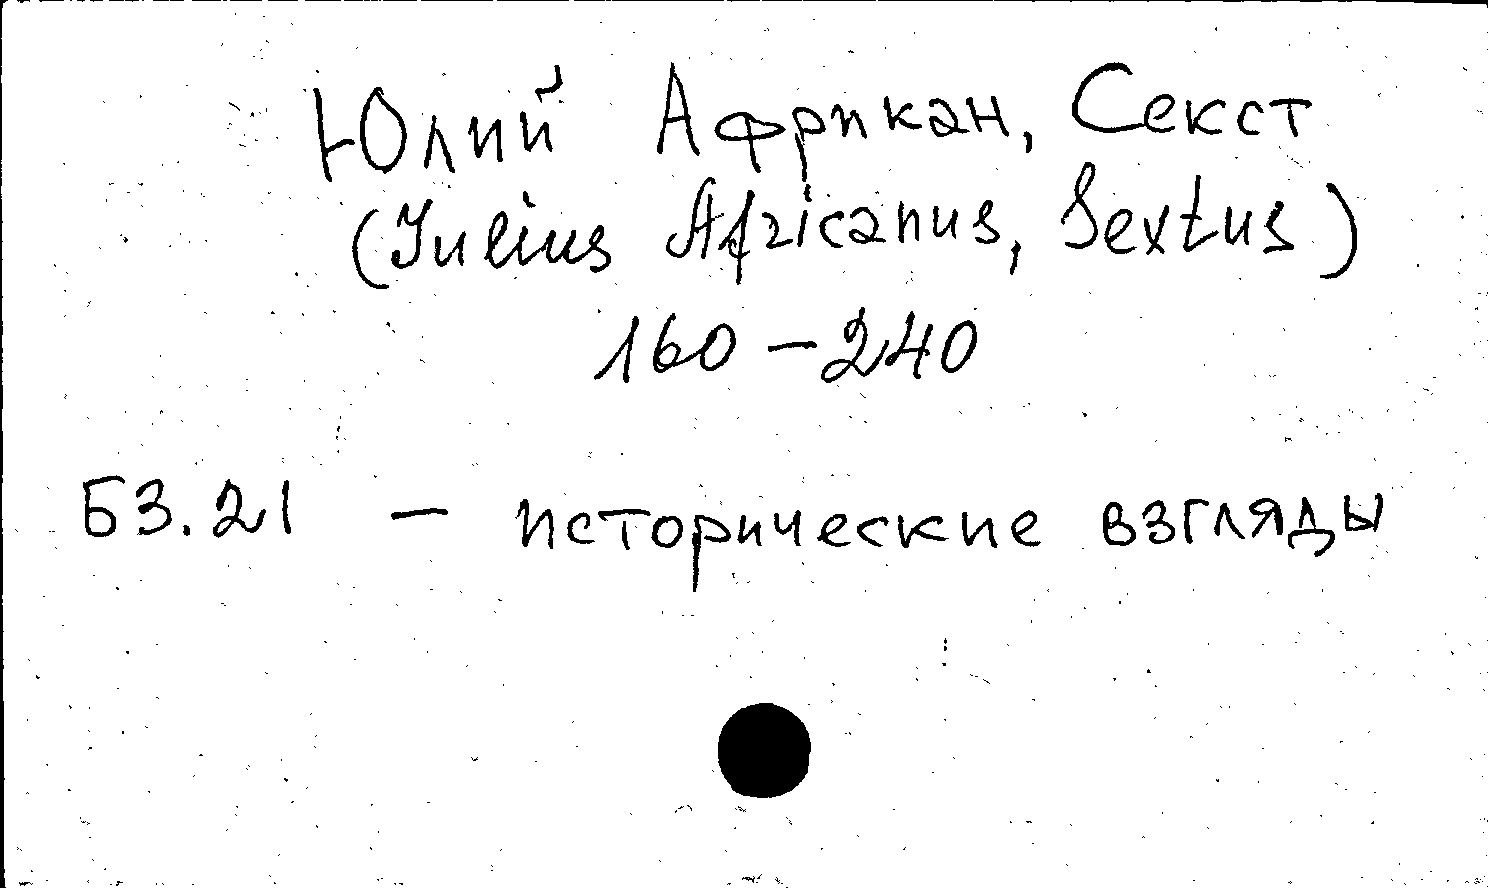 Юлий Африкан, Секст
(Iulius Africanus, Sextus)
160 – 240
Б3.21 – исторические взгляды